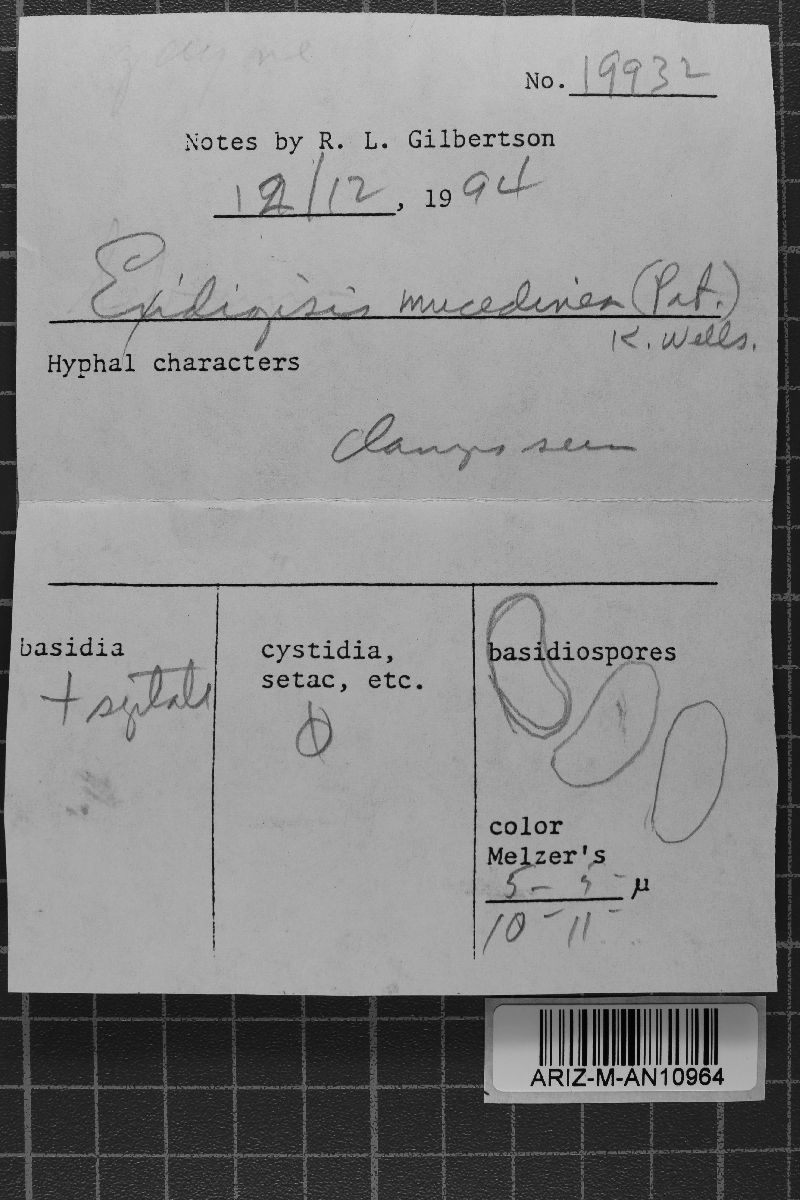 No. 19932
Notes by R. L. Gilbertson
12/12, 1994
Exidiopisis mucedinea (Pat.)
K. Wells.
Hyphal characters
clamps seen
basidia
+ septate
cystidia,
setac, etc.
basidiospores
color
Melzer's
5- 5- μ
10-11-
ARIZ-M-AN10964